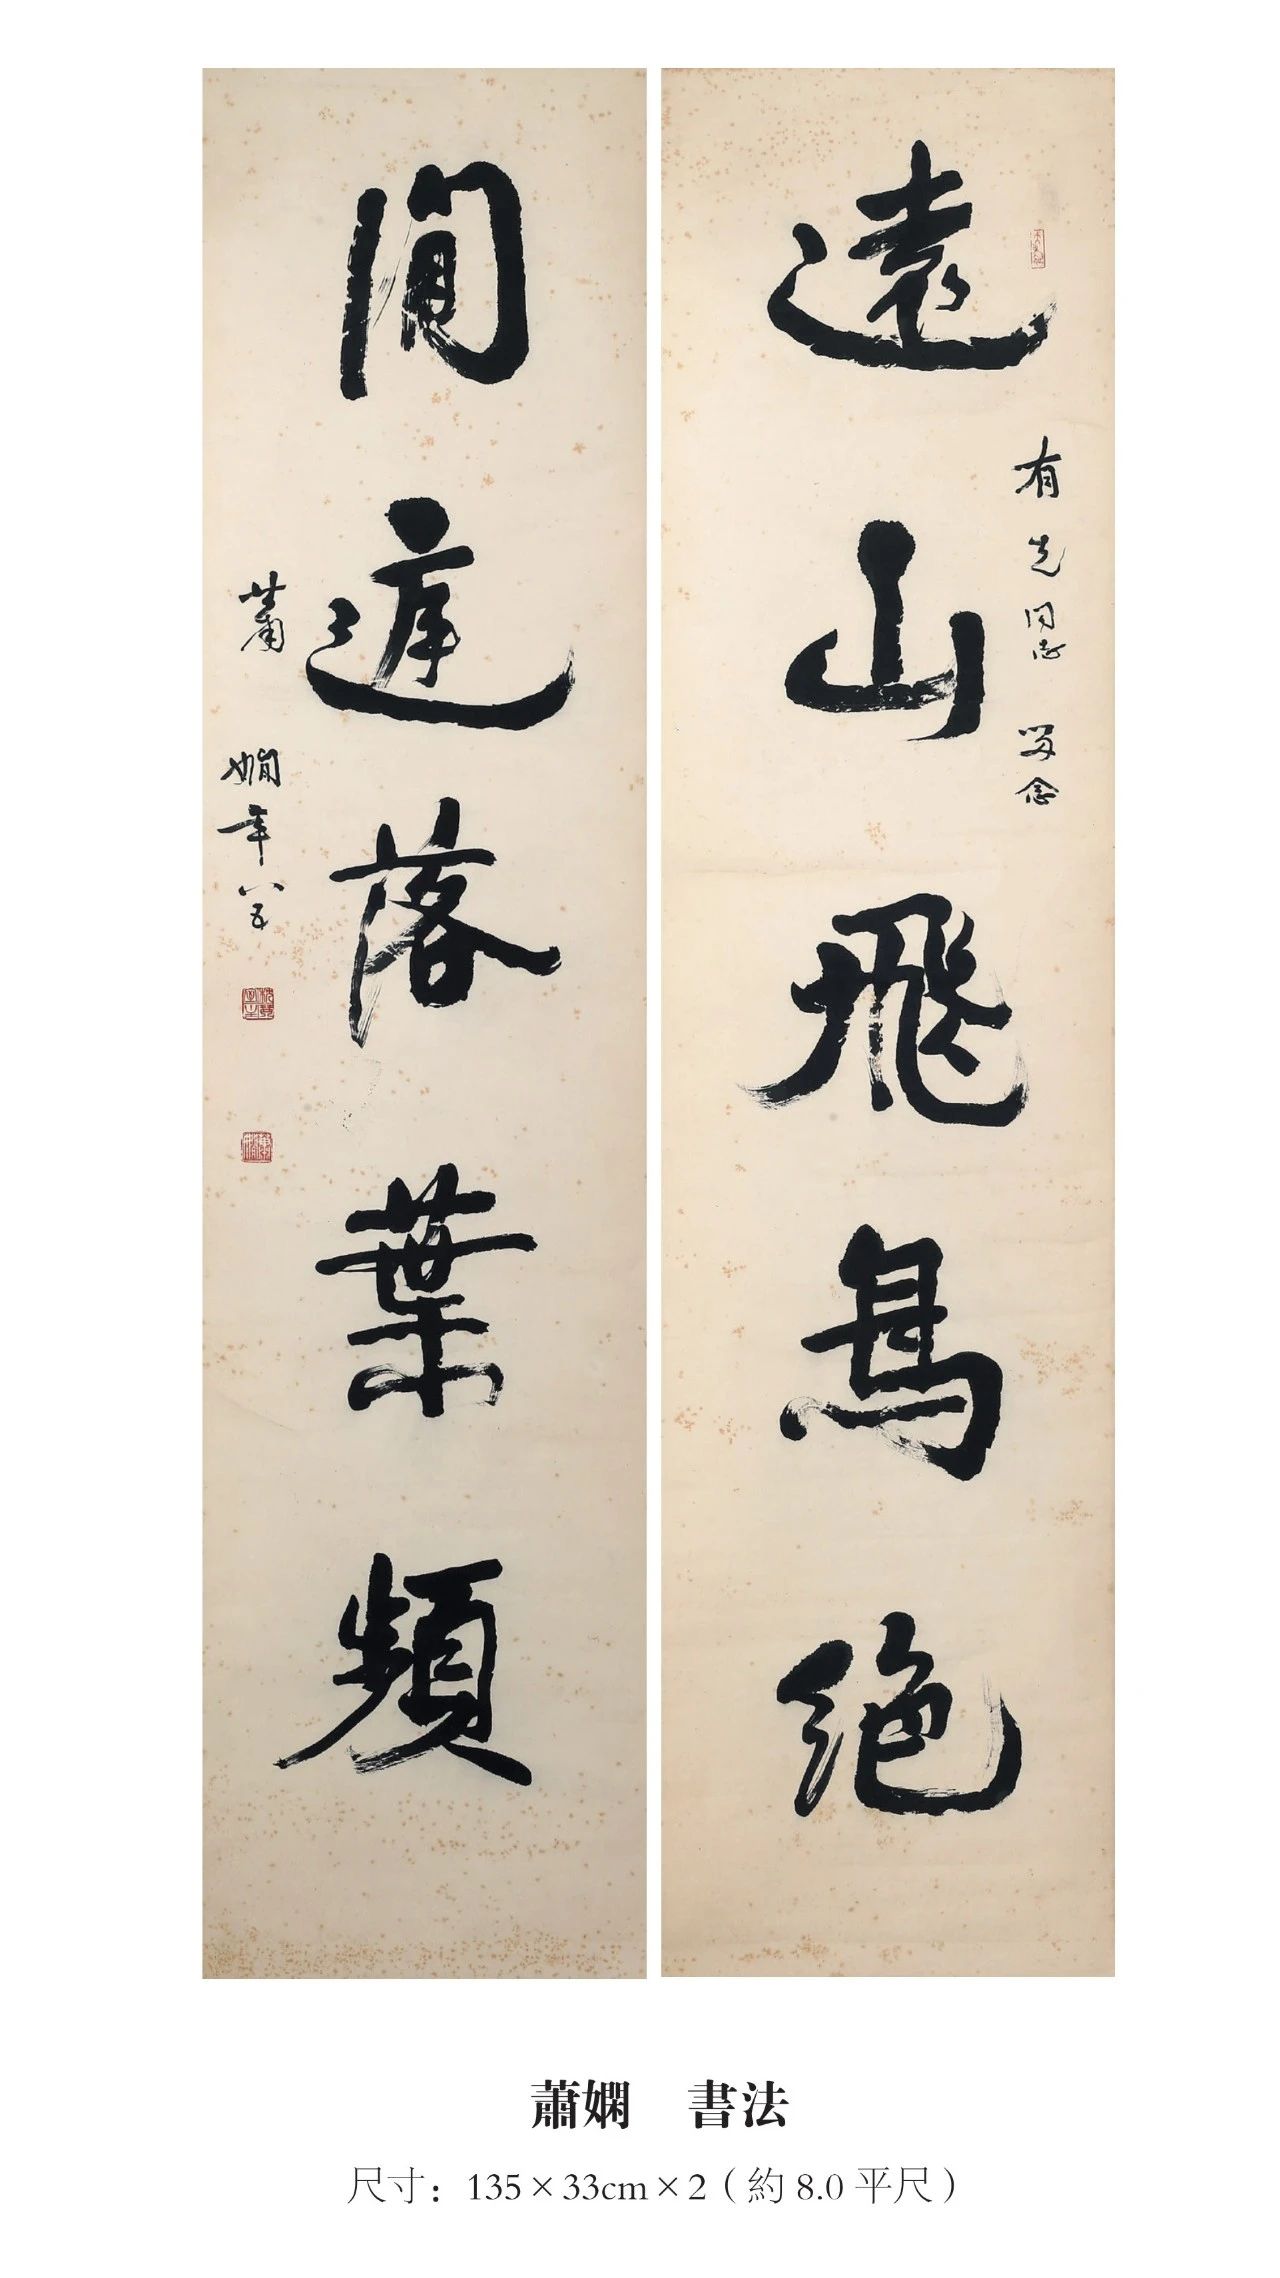 遠山飛鳥絕
有先同志 留念
閒庭落葉頻
蕭嫻年八五
蕭嫻 書法
尺寸：135×33cm×2（約 8.0 平尺）